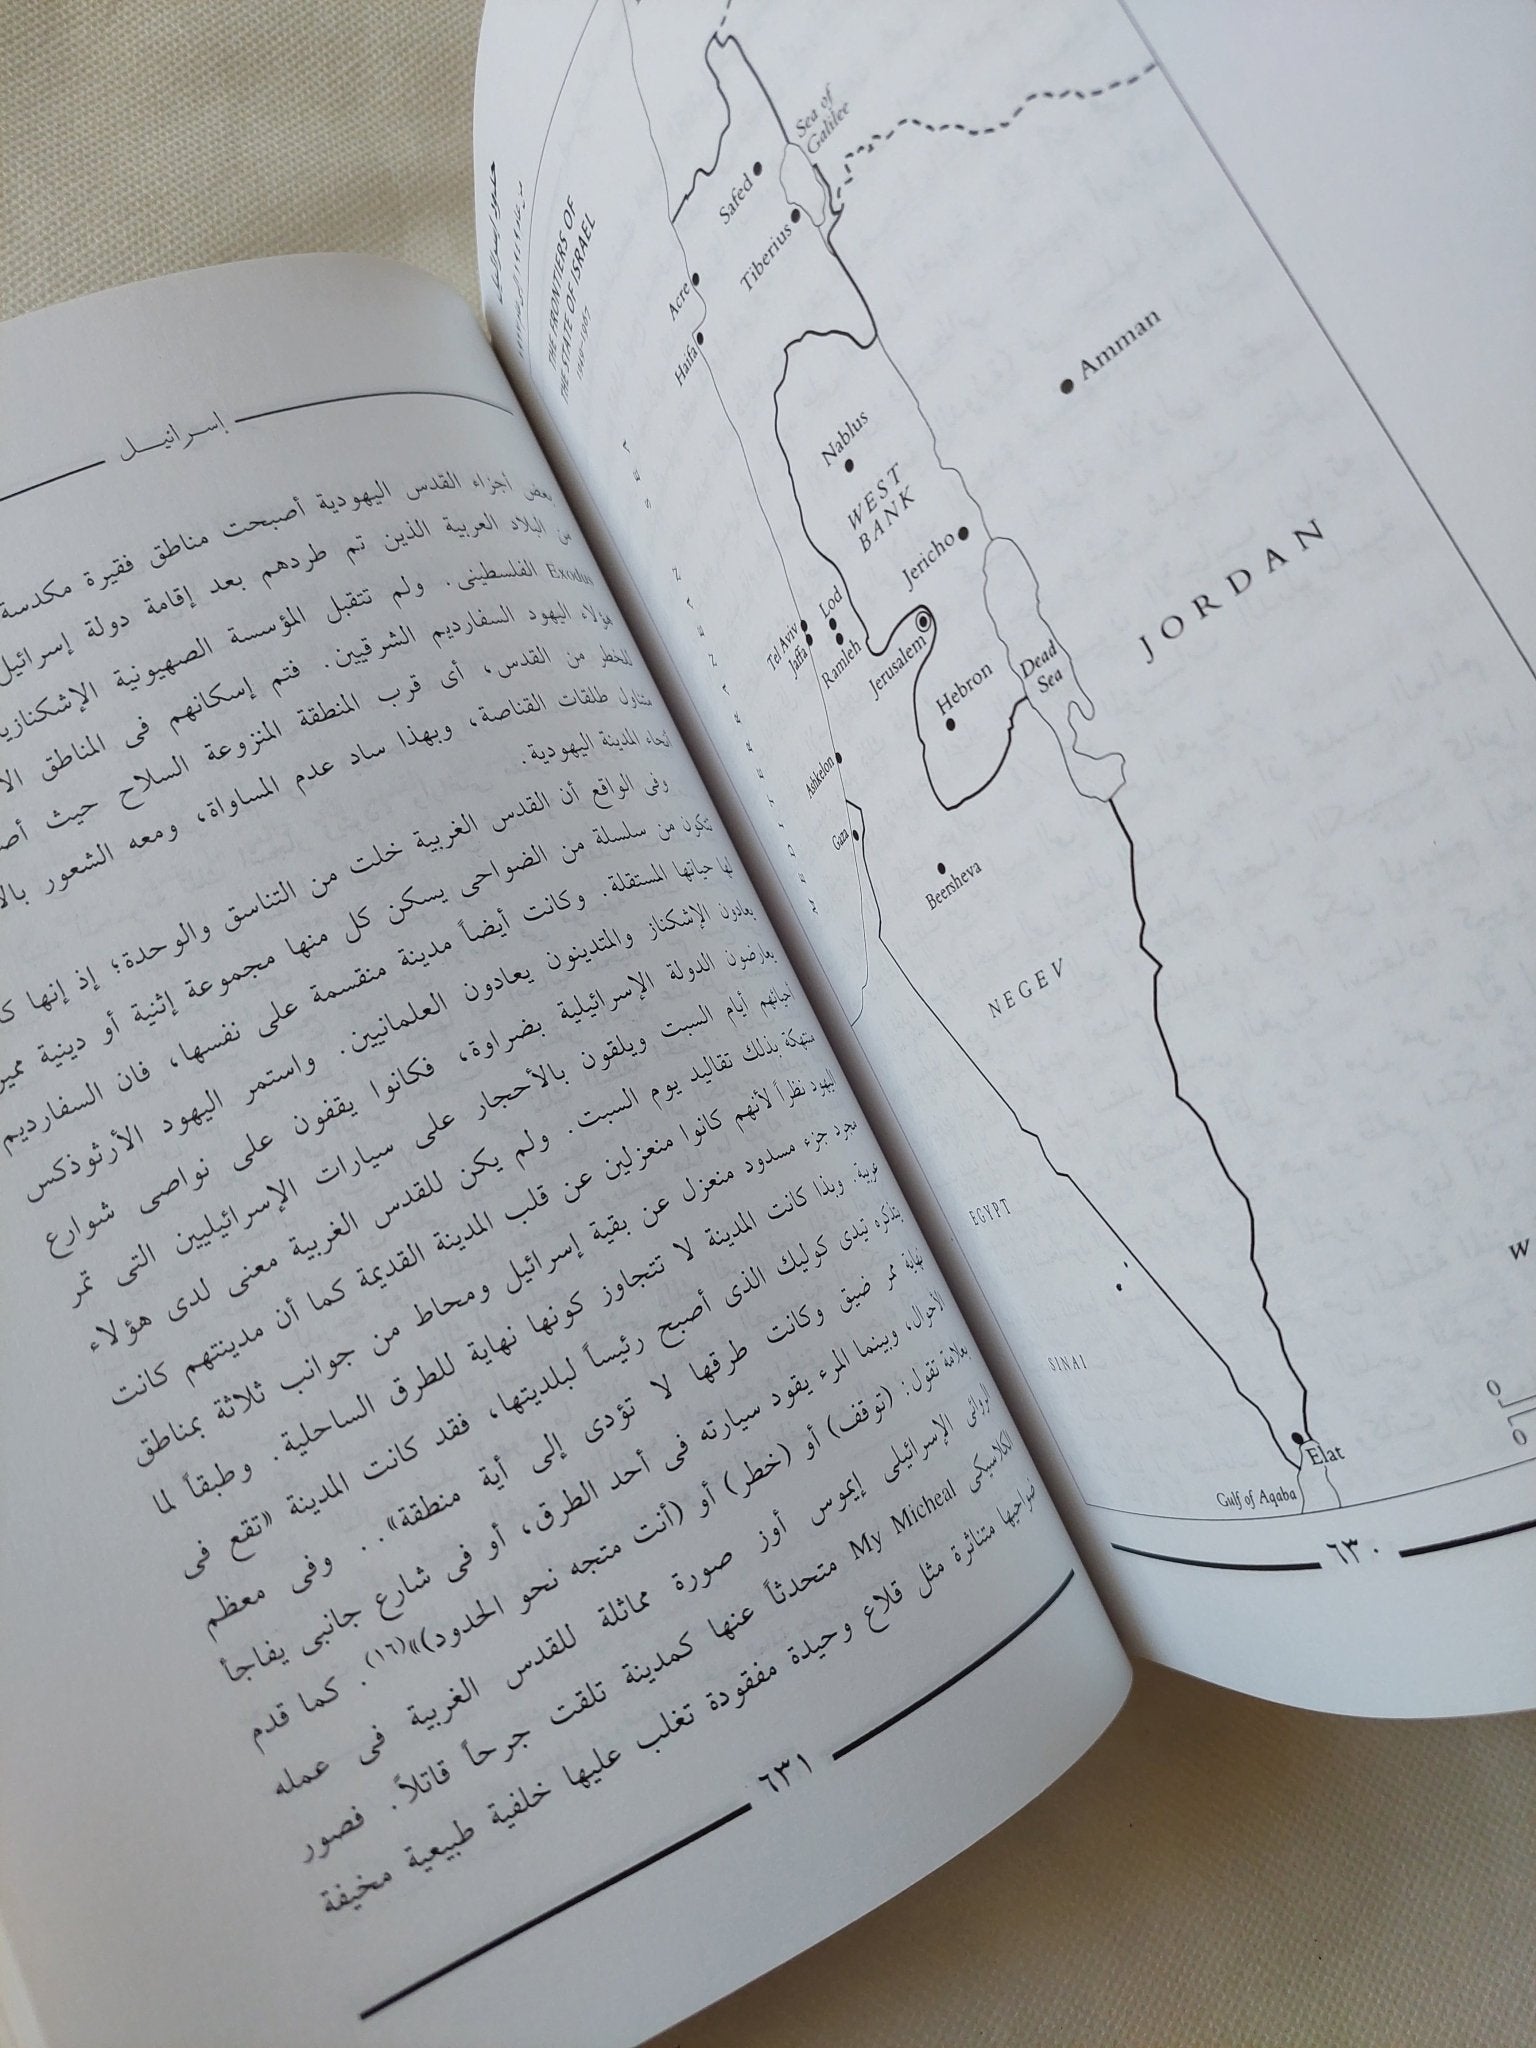 THE FRONTIERS OF
THE STATE OF ISRAEL
1949-1967
Sea of
Galilee
Safed
Tiberius
Acre
Haifa
Amman
Nablus
WEST
BANK
Jericho
JORDAN
Tel Aviv
Jaffa
Lod
Ramleh
Jerusalem
Hebron
Dead
Sea
MEDITERRANEAN SEA
Ashkelon
Gaza
Beersheva
NEGEV
EGYPT
SINAI
Elat
Gulf of Aqaba
٦٣٠
إسـرائيـــل
بعض أجزاء القدس اليهودية أصبحت مناطق فقيرة مكدسة
من البلاد العربية الذين تم طردهم بعد إقامة دولة إسرائيل
Exodus الفلسطينى. ولم تتقبل المؤسسة الصهيونية
هؤلاء اليهود السفارديم الشرقيين. فتم إسكانهم فى المناطق
للخطر من القدس، أى قرب المنطقة المنزوعة السلاح حيث
متناول طلقات القناصة، وبهذا ساد عدم المساواة، ومعه الشعور
أنحاء المدينة اليهودية.
وفى الواقع أن القدس الغربية خلت من التناسق والوحدة؛ إذ إنها
تتكون من سلسلة من الضواحى يسكن كل منها مجموعة إثنية أو دينية
لها حياتها المستقلة. وكانت أيضاً مدينة منقسمة على نفسها، فان السفارديم
يعادون الإشكناز والمتدينون يعادون العلمانيين. واستمر اليهود الأرثوذكس
يعارضون الدولة الإسرائيلية بضراوة، فكانوا يقفون على نواصى شوارع
أحيائهم أيام السبت ويلقون بالأحجار على سيارات الإسرائيليين التى تمر
منتهكة بذلك تقاليد يوم السبت. ولم يكن للقدس الغربية معنى لدى هؤلاء
اليهود نظراً لأنهم كانوا منعزلين عن قلب المدينة القديمة كما أن مدينتهم كانت
مجرد جزء مسدود منعزل عن بقية إسرائيل ومحاط من جوانب ثلاثة بمناطق
عربية. وبذا كانت المدينة لا تتجاوز كونها نهاية للطرق الساحلية. وطبقاً لما
يتذكره تيدى كوليك الذى أصبح رئيساً لبلديتها، فقد كانت المدينة «تقع فى
نهاية ممر ضيق وكانت طرقها لا تؤدى إلى أية منطقة».. وفى معظم
الأحوال، وبينما المرء يقود سيارته فى أحد الطرق، أو فى شارع جانبى يفاجأ
بعلامة تقول: (توقف) أو (خطر) أو (أنت متجه نحو الحدود)»(١٦). كما قدم
الروائى الإسرائيلى إيموس أوز صورة مماثلة للقدس الغربية فى عمله
الكلاسيكى My Micheal متحدثاً عنها كمدينة تلقت جرحاً قاتلاً. فصور
ضواحيها متناثرة مثل قلاع وحيدة مفقودة تغلب عليها خلفية طبيعية مخيفة
٦٣١